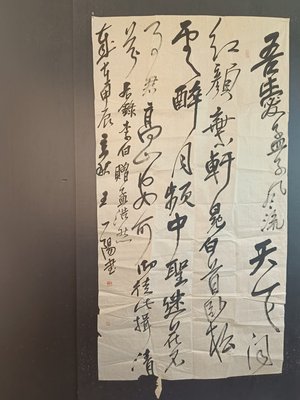 吾愛孟子风流天下闻
紅顔棄軒冕白首卧松
雲醉月頻中聖迷花不
事君高山安可仰徒此揖清
芬 右錄李白贈孟浩然
歲在甲辰秋 王陽書